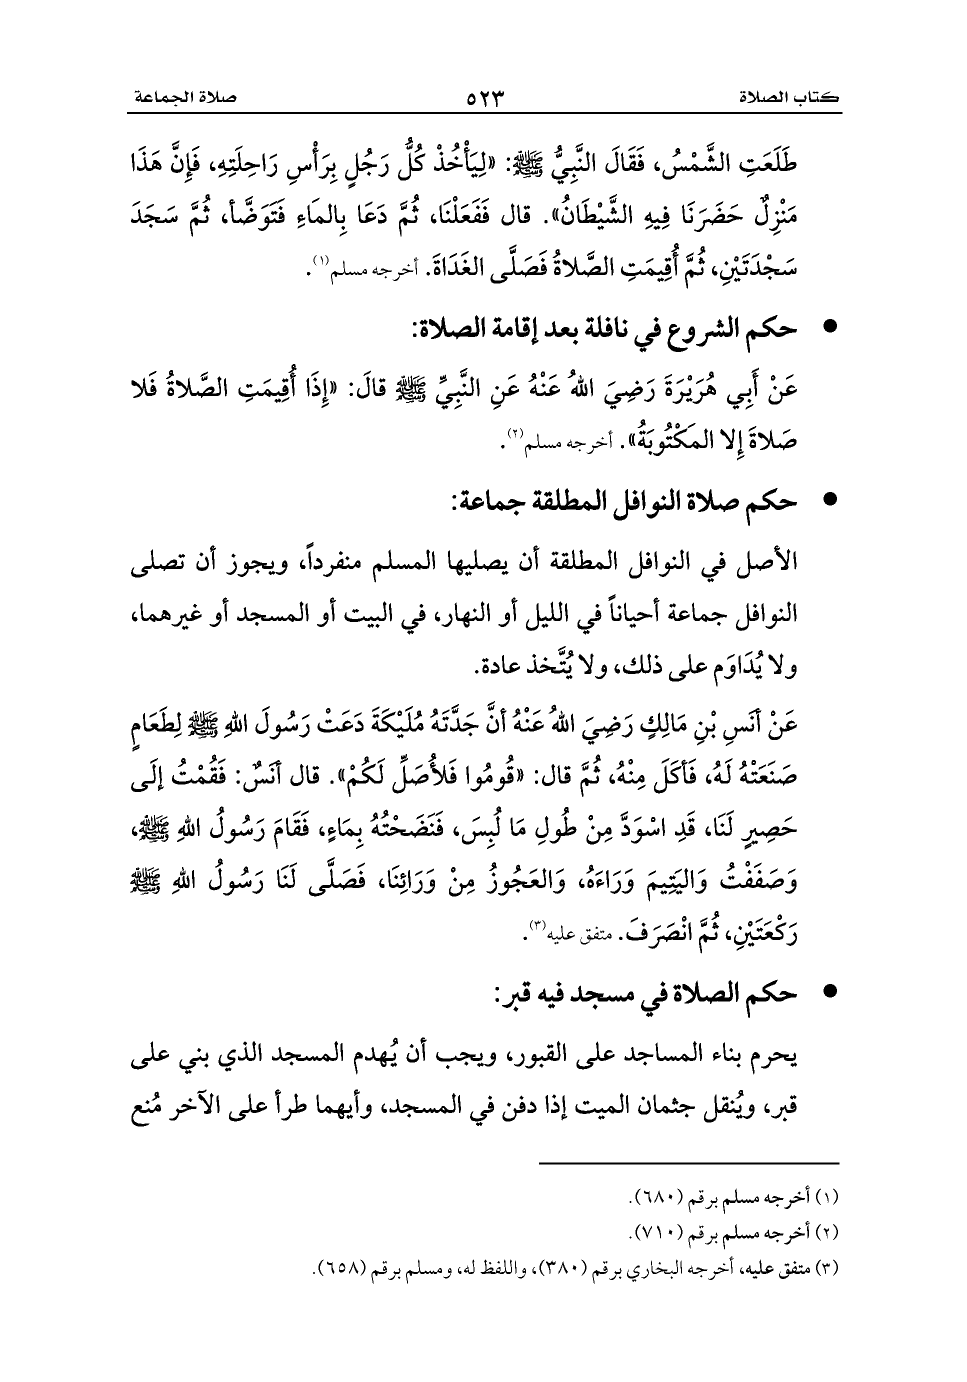 كتاب الصلاة ٥٢٣ صلاة الجماعة
طَلَعَتِ الشَّمْسُ، فَقَالَ النَّبِيُّ ﷺ: «لِيَأْخُذْ كُلُّ رَجُلٍ بِرَأْسِ رَاحِلَتِهِ، فَإِنَّ هَذَا
مَنْزِلٌ حَضَرَنَا فِيهِ الشَّيْطَانُ». قال فَفَعَلْنَا، ثُمَّ دَعَا بِالمَاءِ فَتَوَضَّأ، ثُمَّ سَجَدَ
سَجْدَتَيْنِ، ثُمَّ أُقِيمَتِ الصَّلاةُ فَصَلَّى الغَدَاةَ. أخرجه مسلم(١).
• حكم الشروع في نافلة بعد إقامة الصلاة:
عَنْ أَبِي هُرَيْرَةَ رَضِيَ اللهُ عَنْهُ عَنِ النَّبِيِّ ﷺ قالَ: «إِذَا أُقِيمَتِ الصَّلاةُ فَلا
صَلاةَ إِلا المَكْتُوبَةُ». أخرجه مسلم(٢).
• حكم صلاة النوافل المطلقة جماعة:
الأصل في النوافل المطلقة أن يصليها المسلم منفرداً، ويجوز أن تصلى
النوافل جماعة أحياناً في الليل أو النهار، في البيت أو المسجد أو غيرهما،
ولا يُدَاوَم على ذلك، ولا يُتَّخذ عادة.
عَنْ أنَسِ بْنِ مَالِكٍ رَضِيَ اللهُ عَنْهُ أنَّ جَدَّتَهُ مُلَيْكَةَ دَعَتْ رَسُولَ اللهِ ﷺ لِطَعَامٍ
صَنَعَتْهُ لَهُ، فَأكَلَ مِنْهُ، ثُمَّ قال: «قُومُوا فَلأُصَلِّ لَكُمْ». قال أنَسٌ: فَقُمْتُ إلَى
حَصِيرٍ لَنَا، قَدِ اسْوَدَّ مِنْ طُولِ مَا لُبِسَ، فَنَضَحْتُهُ بِمَاءٍ، فَقَامَ رَسُولُ اللهِ ﷺ،
وَصَفَفْتُ وَاليَتِيمَ وَرَاءَهُ، وَالعَجُوزُ مِنْ وَرَائِنَا، فَصَلَّى لَنَا رَسُولُ اللهِ ﷺ
رَكْعَتَيْنِ، ثُمَّ انْصَرَفَ. متفق عليه(٣).
• حكم الصلاة في مسجد فيه قبر:
يحرم بناء المساجد على القبور، ويجب أن يُهدم المسجد الذي بني على
قبر، ويُنقل جثمان الميت إذا دفن في المسجد، وأيهما طرأ على الآخر مُنع
(١) أخرجه مسلم برقم (٦٨٠).
(٢) أخرجه مسلم برقم (٧١٠).
(٣) متفق عليه، أخرجه البخاري برقم (٣٨٠)، واللفظ له، ومسلم برقم (٦٥٨).